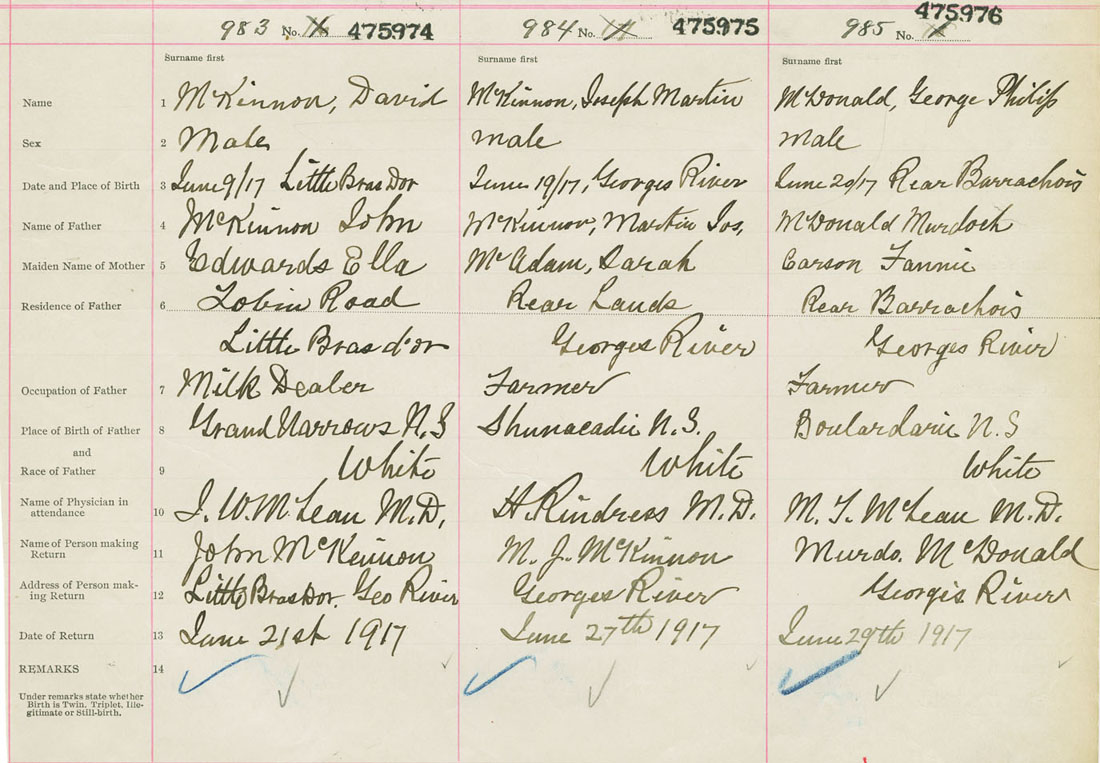 983 No. 475974 984 No. 475975 985 No. 475976
Surname first Surname first Surname first
Name 1 McKinnon, David McKinnon, Joseph Martin McDonald, George Philip
Sex 2 Male male male
Date and Place of Birth 3 June 9/17 Little Bras Dor June 19/17, Georges River June 20/17 Rear Barrachois
Name of Father 4 McKinnon John McKinnon, Martin Jos. McDonald Murdoch
Maiden Name of Mother 5 Edwards Ella McAdam, Sarah Carson Fannie
Residence of Father 6 Tobin Road Rear Lands Rear Barrachois
Little Bras d'or Georges River Georges River
Occupation of Father 7 Milk Dealer Farmer Farmer
Place of Birth of Father 8 Grand Narrows N.S Shunacadie N.S. Boulardarie N.S
and
Race of Father 9 White White White
Name of Physician in
attendance 10 J. W. McLean M.D. H. Rindress M.D. M. T. McLean M.D.
Name of Person making
Return 11 John McKennon M. J. McKinnon Murdo. McDonald
Address of Person mak-
ing Return 12 Little Bras Dor. Geo River Georges River Georges River
Date of Return 13 June 21st 1917 June 27th 1917 June 29th 1917
REMARKS 14
Under remarks state whether
Birth is Twin, Triplet, Ille-
gitimate or Still-birth.